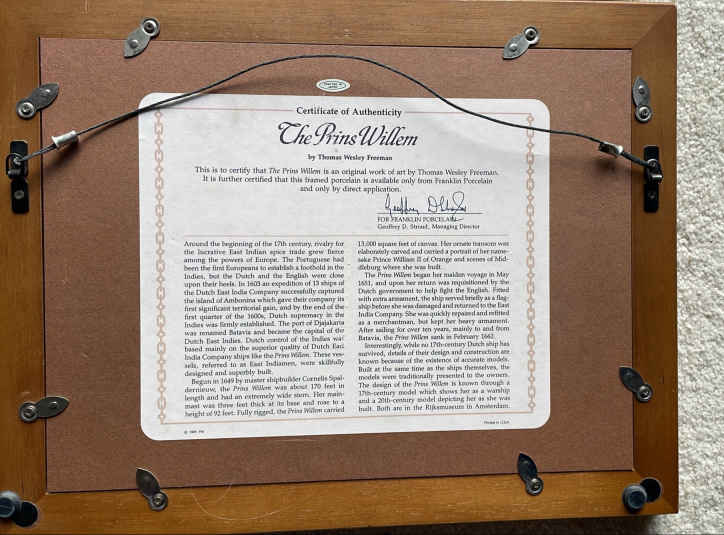 Certificate of Authenticity
The Prins Willem
by Thomas Wesley Freeman
This is to certify that The Prins Willem is an original work of art by Thomas Wesley Freeman.
It is further certified that this framed porcelain is available only from Franklin Porcelain
and only by direct application.
FOR FRANKLIN PORCELAIN
Geoffrey D. Stroud, Managing Director
Around the beginning of the 17th century, rivalry for
the lucrative East Indian spice trade grew fierce
among the powers of Europe. The Portuguese had
been the first Europeans to establish a foothold in the
Indies, but the Dutch and the English were close
upon their heels. In 1603 an expedition of 13 ships of
the Dutch East India Company successfully captured
the island of Ambonina which gave their company its
first significant territorial gain, and by the end of the
first quarter of the 1600s, Dutch supremacy in the
Indies was firmly established. The port of Djajakarta
was renamed Batavia and became the capital of the
Dutch East Indies. Dutch control of the Indies was
based mainly on the superior quality of Dutch East
India Company ships like the Prins Willem. These ves-
sels, referred to as East Indiamen, were skillfully
designed and superbly built.
Begun in 1649 by master shipbuilder Cornelis Spal-
dernieuw, the Prins Willem was about 170 feet in
length and had an extremely wide stern. Her main-
mast was three feet thick at its base and rose to a
height of 92 feet. Fully rigged, the Prins Willem carried
13,000 square feet of canvas. Her ornate transom was
elaborately carved and carried a portrait of her name-
sake Prince William II of Orange and scenes of Mid-
dleburg where she was built.
The Prins Willem began her maiden voyage in May
1651, and upon her return was requisitioned by the
Dutch government to help fight the English. Fitted
with extra armament, the ship served briefly as a flag-
ship before she was damaged and returned to the East
India Company. She was quickly repaired and refitted
as a merchantman, but kept her heavy armament.
After sailing for over ten years, mainly to and from
Batavia, the Prins Willem sank in February 1662.
Interestingly, while no 17th-century Dutch ship has
survived, details of their design and construction are
known because of the existence of accurate models.
Built at the same time as the ships themselves, the
models were traditionally presented to the owners.
The design of the Prins Willem is known through a
17th-century model which shows her as a warship
and a 20th-century model depicting her as she was
built. Both are in the Rijksmuseum in Amsterdam.
Printed in U.S.A.